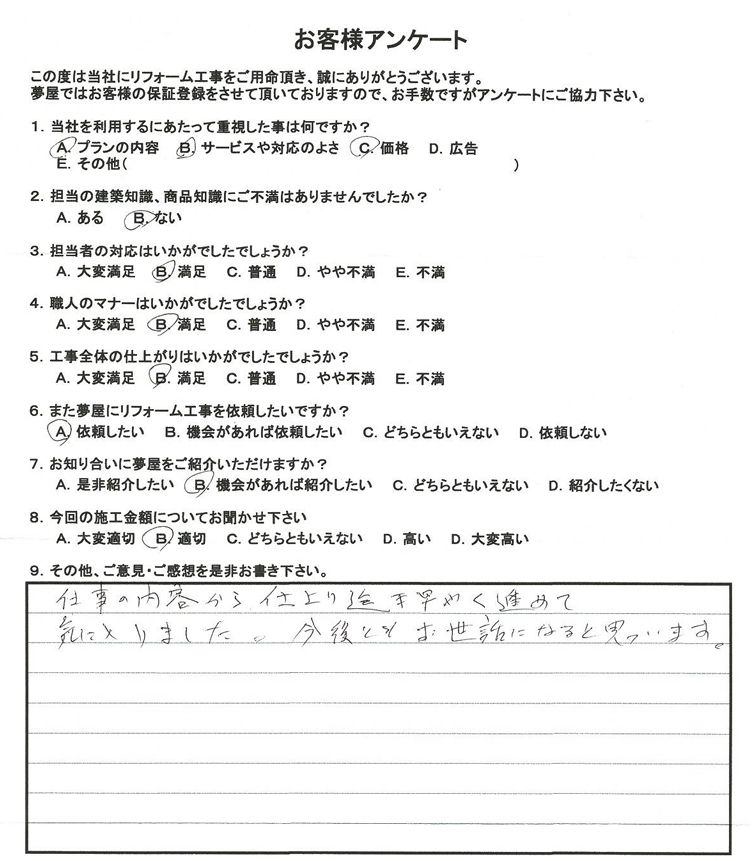 お客様アンケート
この度は当社にリフォーム工事をご用命頂き、誠にありがとうございます。
夢屋ではお客様の保証登録をさせて頂いておりますので、お手数ですがアンケートにご協力下さい。
1. 当社を利用するにあたって重視した事は何ですか？
A. プランの内容 B. サービスや対応のよさ C. 価格 D. 広告
E. その他( )
2. 担当の建築知識、商品知識にご不満はありませんでしたか？
A. ある B. ない
3. 担当者の対応はいかがでしたでしょうか？
A. 大変満足 B. 満足 C. 普通 D. やや不満 E. 不満
4. 職人のマナーはいかがでしたでしょうか？
A. 大変満足 B. 満足 C. 普通 D. やや不満 E. 不満
5. 工事全体の仕上がりはいかがでしたでしょうか？
A. 大変満足 B. 満足 C. 普通 D. やや不満 E. 不満
6. また夢屋にリフォーム工事を依頼したいですか？
A. 依頼したい B. 機会があれば依頼したい C. どちらともいえない D. 依頼しない
7. お知り合いに夢屋をご紹介いただけますか？
A. 是非紹介したい B. 機会があれば紹介したい C. どちらともいえない D. 紹介したくない
8. 今回の施工金額についてお聞かせ下さい
A. 大変適切 B. 適切 C. どちらともいえない D. 高い D. 大変高い
9. その他、ご意見・ご感想を是非お書き下さい。
仕事の内容から仕上り迄手早やく進めて
気に入りました。今後ともお世話になると思っています。